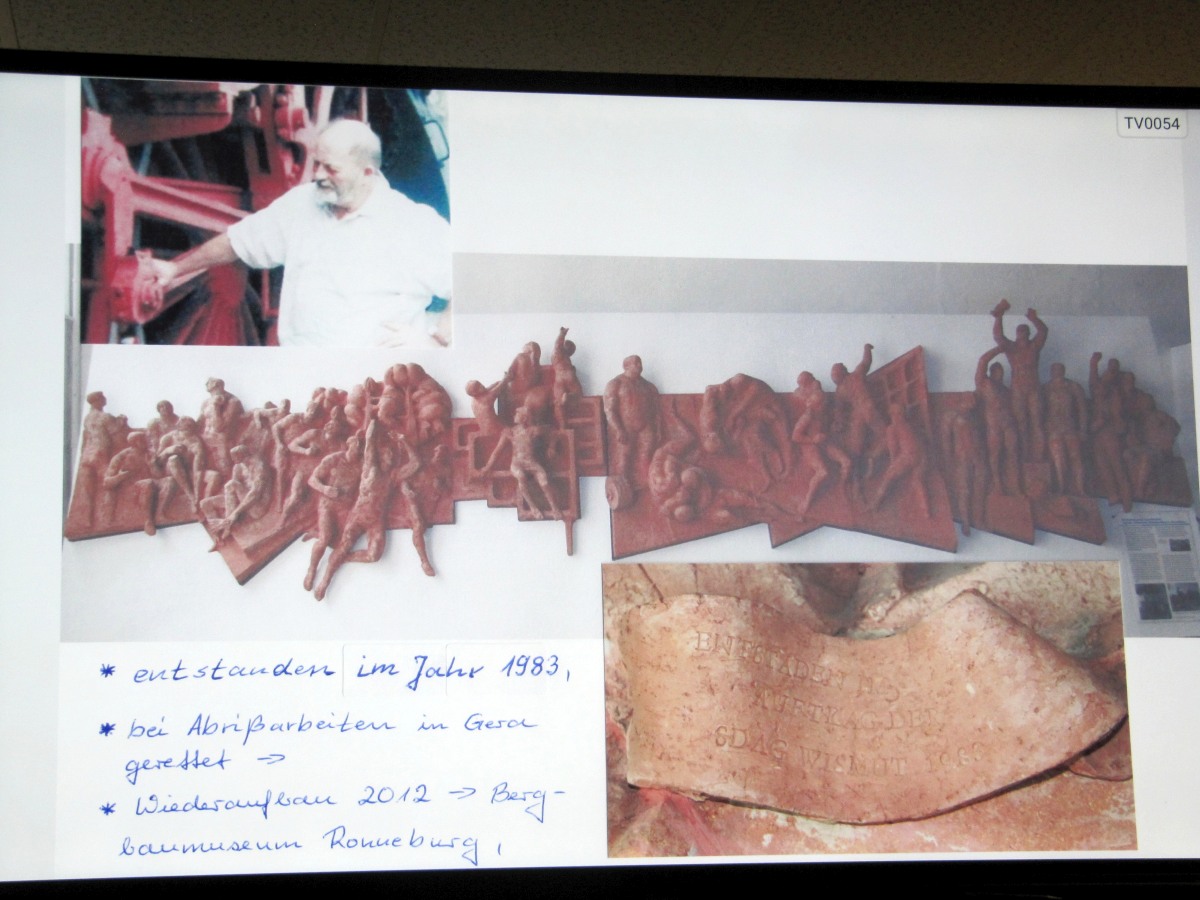 TV0054
* entstanden im Jahr 1983,
* bei Abrißarbeiten in Gera
gerettet →
* Wiederaufbau 2012 → Berg-
baumuseum Ronneburg,
SDAG WISMUT